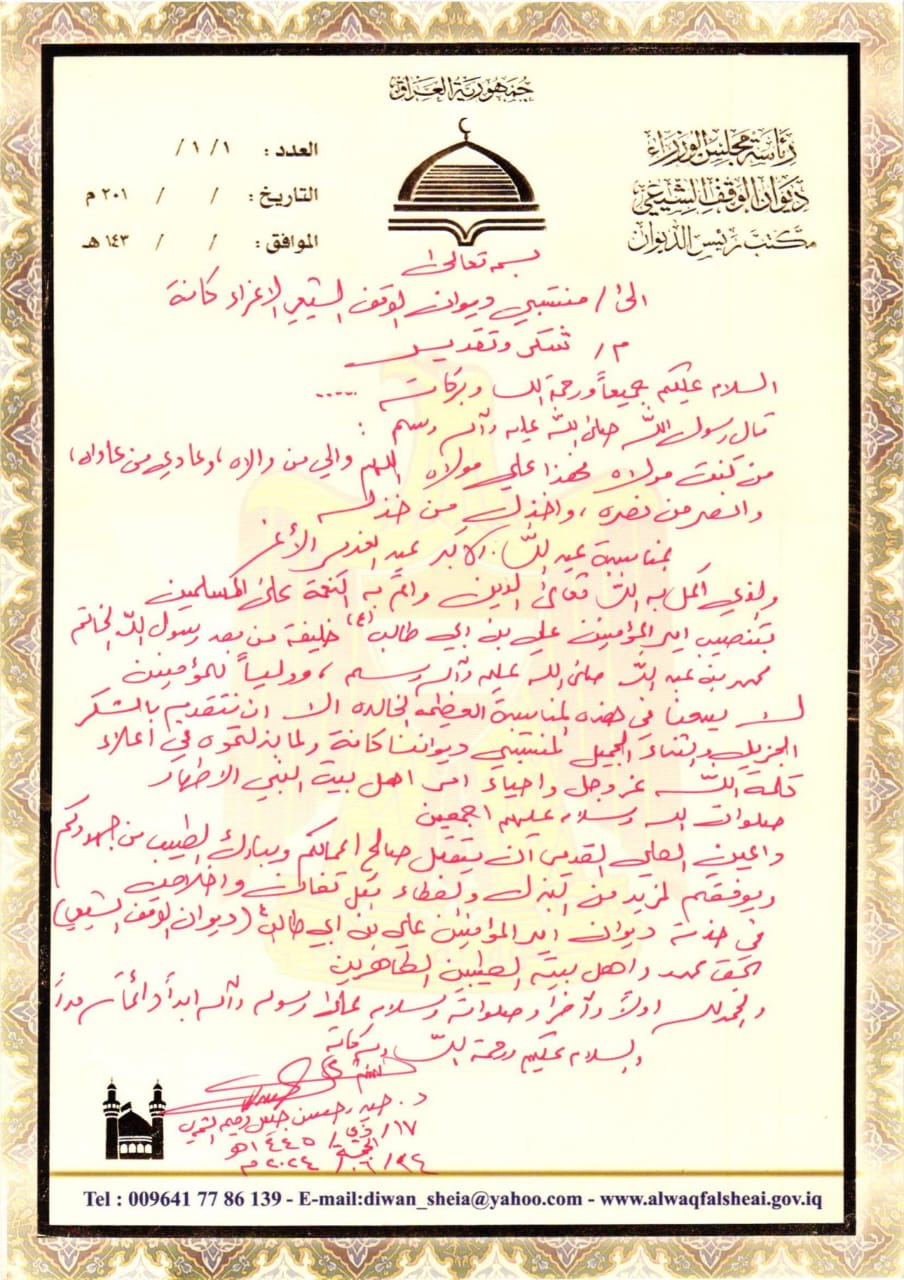 جمهورية العراق
رئاسة مجلس الوزراء
ديوان الوقف الشيعي
مكتب رئيس الديوان
العدد : ١ / ١ /
التاريخ : / / ٢٠١ م
الموافق : / / ١٤٣ هـ
بسمه تعالى
الى / منتسبي ديوان الوقف الشيعي الاعزاء كافة
م / شكر وتقدير
السلام عليكم جميعاً ورحمة الله وبركاته .....
قال رسول الله صلى الله عليه وآله وسلم :
من كنت مولاه فهذا علي مولاه اللهم والي من والاه ، وعادي من عاداه ،
وانصر من نصره ، واخذل من خذله
بمناسبة عيد الله الاكبر عيد الغدير الأغر
والذي اكمل به الله تعالى الدين واتم به النعمة على المسلمين
بتنصيب امير المؤمنين علي بن ابي طالب (ع) خليفة من بعد رسول الله الخاتم
محمد بن عبد الله صلى الله عليه وآله وسلم ، وولياً للمؤمنين
لا يسعنا في هذه المناسبة العظيمة الخالدة الا ان نتقدم بالشكر
الجزيل والثناء الجميل لمنتسبي ديواننا كافة ولما بذلتموه في اعلاء
كلمة الله عز وجل واحياء امر اهل بيت النبي الاطهار
صلوات الله وسلامه عليهم اجمعين
العلي القدير ان يتقبل صالح اعمالكم ويبارك الطيب من جهودكم
ويوفقكم لمزيد من البذل والعطاء بكل تفان واخلاص
في خدمة ديوان امير المؤمنين علي بن ابي طالب ع (ديوان الوقف الشيعي)
بحق محمد واهل بيته الطيبين الطاهرين
والحمد لله اولاً وآخراً وصلواته وسلامه على رسوله وآله ابداً دائماً
والسلام عليكم ورحمة الله وبركاته
د. حيدر حسن الشمري
١٧ / ذي الحجة / ١٤٤٥ هـ
٢٤ / ٦ / ٢٠٢٤ م
Tel : 009641 77 86 139 - E-mail:diwan_sheia@yahoo.com - www.alwaqfalsheai.gov.iq